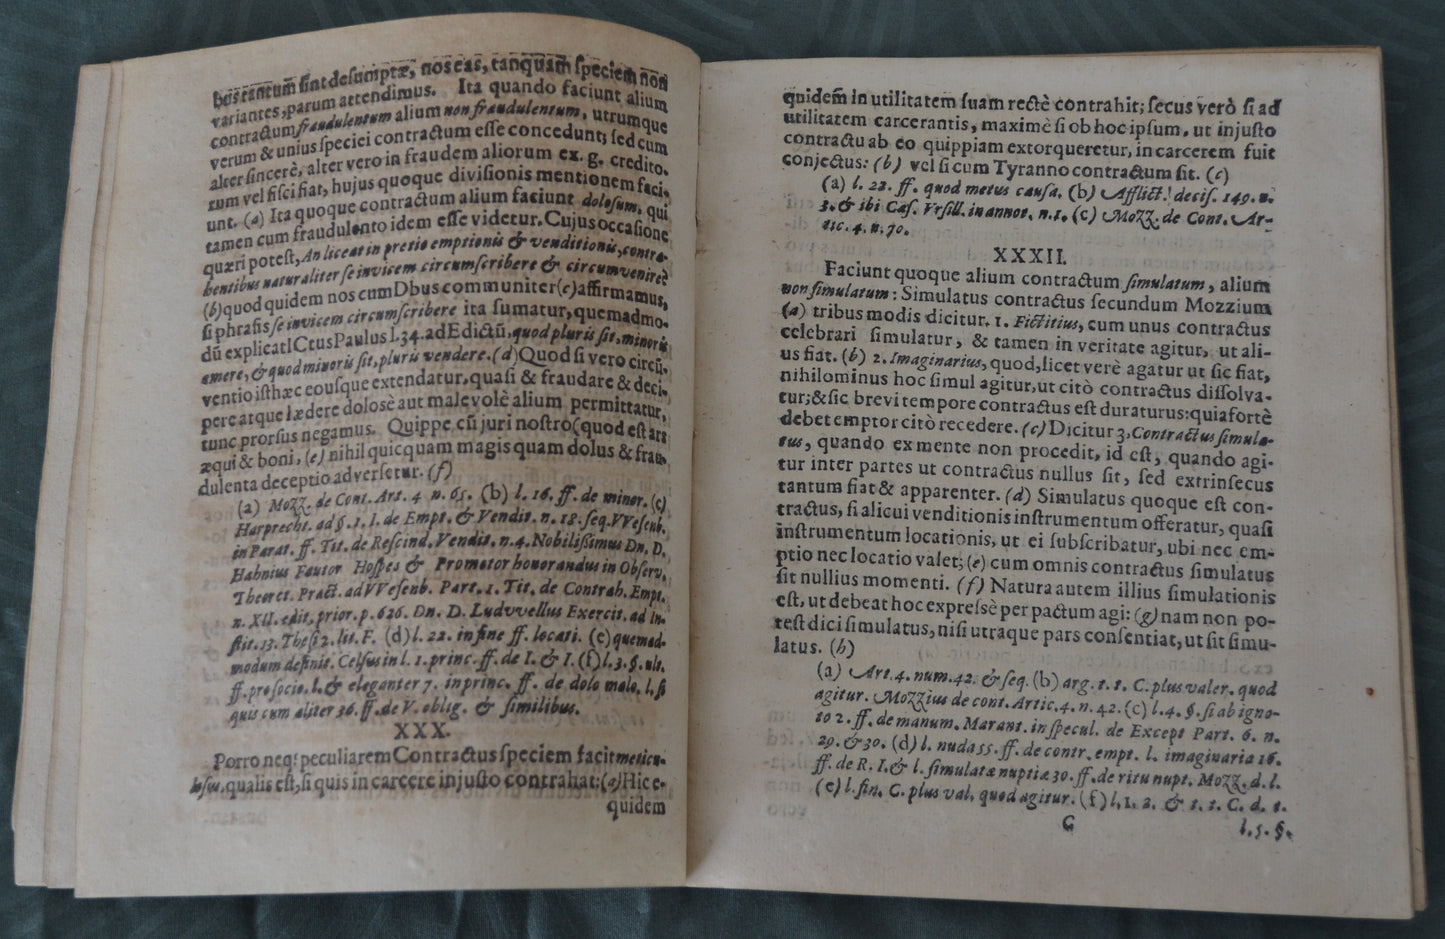 bus tantum sint desumptæ, nos eas, tanquam speciem non
variantes, parum attendimus. Ita quando faciunt alium
contractum fraudulentum alium non fraudulentum, utrumque
verum & unius speciei contractum esse concedunt; sed cum
alter sincerè, alter vero in fraudem aliorum ex. g. credito-
rum vel fisci fiat, hujus quoque divisionis mentionem faci-
unt. (a) Ita quoque contractum alium faciunt dolosum, qui
tamen cum fraudulento idem esse videtur. Cujus occasione
quæri potest, An liceat in pretio emptionis & venditionis, contra-
hentibus naturaliter se invicem circumscribere & circumvenire?
(b) quod quidem nos cum Dbus communiter (c) affirmamus,
si phrasis se invicem circumscribere ita sumatur, quemadmo-
dū explicat ICtus Paulus l. 34. ad Edictū, quod pluris sit, minoris
emere, & quod minoris sit, pluris vendere. (d) Quod si vero circū-
ventio isthæc eousque extendatur, quasi & fraudare & deci-
pere atque lædere dolosè aut malevolè alium permittatur,
tunc prorsus negamus. Quippe cū juri nostro (quod est ars
æqui & boni, (e) nihil quicquam magis quam dolus & frau-
dulenta deceptio adversetur. (f)
(a) Mozz. de Cont. Art. 4 n. 65. (b) l. 16. ff. de minor. (c)
Harprecht. ad §. 1. I. de Empt. & Vendit. n. 18. seq. VVesenb.
in Parat. ff. Tit. de Rescind. Vendit. n. 4. Nobilißimus Dn. D.
Hahnius Fautor Hospes & Promotor honorandus in Observ.
Theoret. Pract. ad VVesenb. Part. 1. Tit. de Contrah. Empt.
n. XII. edit. prior. p. 626. Dn. D. Ludvvellus Exercit. ad In-
stit. 13. Thesi 2. lit. F. (d) l. 22. in fine ff. locati. (e) quemad-
modum definit. Celsus in l. 1. princ. ff. de I. & I. (f) l. 3. §. ult.
ff. pro socio. l. & eleganter 7. in princ. ff. de dolo malo. l. si
quis cum aliter 36. ff. de V. oblig. & similibus.
XXX.
Porro neq; peculiarem Contractus speciem facit meticu-
losus, qualis est, si quis in carcere injusto contrahat; (a) Hic e-
quidem
quidem in utilitatem suam rectè contrahit; secus verò si ad
utilitatem carcerantis, maximè si ob hoc ipsum, ut injusto
contractu ab eo quippiam extorqueretur, in carcerem fuit
conjectus: (b) vel si cum Tyranno contractum sit. (c)
(a) l. 22. ff. quod metus causa. (b) Afflict. decis. 149. n.
3. & ibi Cæs. Ursill. in annot. n. 1. (c) Mozz. de Cont. Ar-
tic. 4. n. 70.
XXXII.
Faciunt quoque alium contractum simulatum, alium
non simulatum: Simulatus contractus secundum Mozzium
(a) tribus modis dicitur. 1. Fictitius, cum unus contractus
celebrari simulatur, & tamen in veritate agitur, ut ali-
us fiat. (b) 2. Imaginarius, quod, licet verè agatur ut sic fiat,
nihilominus hoc simul agitur, ut citò contractus dissolva-
tur; & sic brevi tempore contractus est duraturus: quia fortè
debet emptor citò recedere. (c) Dicitur 3. Contractus simula-
tus, quando ex mente non procedit, id est, quando agi-
tur inter partes ut contractus nullus sit, sed extrinsecus
tantum fiat & apparenter. (d) Simulatus quoque est con-
tractus, si alicui venditionis instrumentum offeratur, quasi
instrumentum locationis, ut ei subscribatur, ubi nec em-
ptio nec locatio valet; (e) cum omnis contractus simulatus
sit nullius momenti. (f) Natura autem illius simulationis
est, ut debeat hoc expressè per pactum agi: (g) nam non po-
test dici simulatus, nisi utraque pars consentiat, ut sit simu-
latus. (h)
(a) Art. 4. num. 42. & seq. (b) arg. t. t. C. plus valer. quod
agitur. Mozzius de cont. Artic. 4. n. 42. (c) l. 4. §. si ab igno-
to 2. ff. de manum. Marant. in specul. de Except Part. 6. n.
29. & 30. (d) l. nuda 55. ff. de contr. empt. l. imaginaria 16.
ff. de R. I. & l. simulatæ nuptiæ 30. ff. de ritu nupt. Mozz. d. l.
(e) l. fin. C. plus val. quod agitur. (f) l. 1. 2. & t. t. C. d. t.
C
l. 5. §.